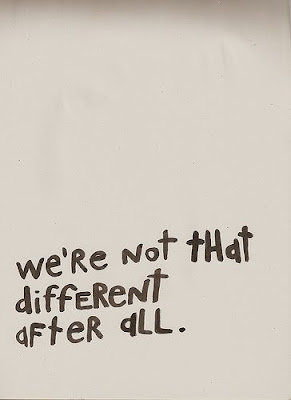 we're not that
different
after all.